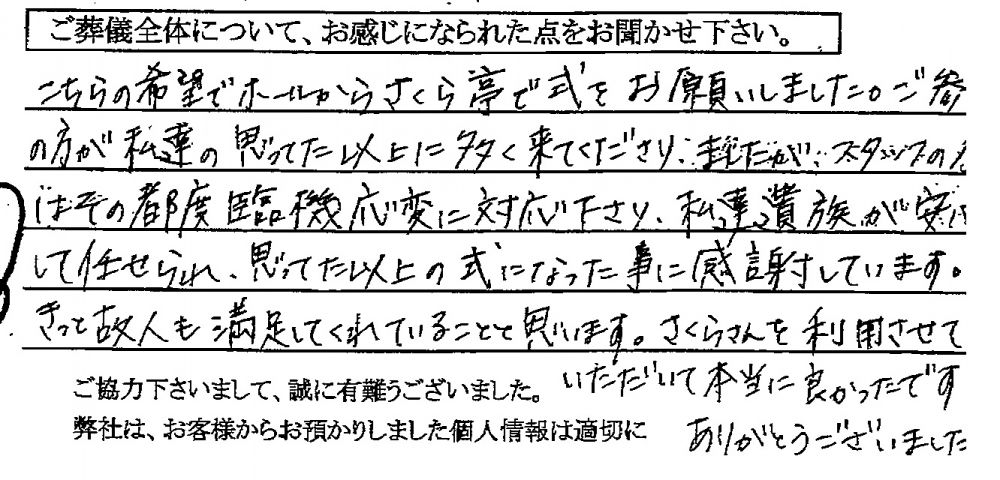 ご葬儀全体について、お感じになられた点をお聞かせ下さい。
こちらの希望でホールからさくら亭で式をお願いしました。ご参
の方が私達の思ってた以上に多く来てくださり、ましたが、スタッフの方
はその都度臨機応変に対応下さり、私達遺族が安心
して任せられ、思ってた以上の式になった事に感謝しています。
きっと故人も満足してくれていることと思います。さくらさんを利用させて
ご協力下さいまして、誠に有難うございました。いただいて本当に良かったです
弊社は、お客様からお預かりしました個人情報は適切に ありがとうございました